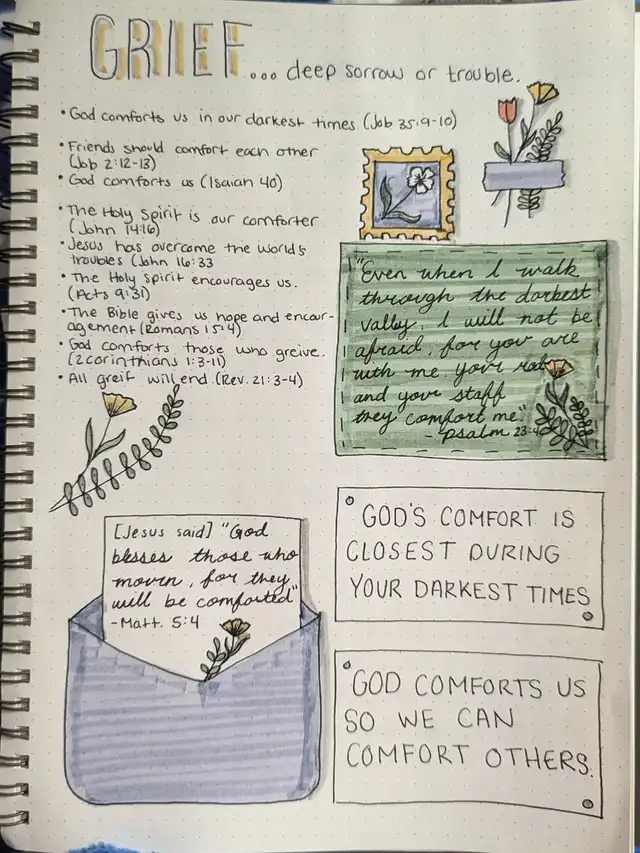 GRIEF... deep sorrow or trouble.
• God comforts us in our darkest times (Job 35:9-10)
• Friends should comfort each other
(Job 2:12-13)
• God comforts us (Isaiah 40)
• The Holy Spirit is our comforter
(John 14:16)
• Jesus has overcome the world's
troubles (John 16:33
• The Holy Spirit encourages us.
(Acts 9:31)
• The Bible gives us hope and encour-
agement (Romans 15:4)
• God comforts those who greive.
(2 corinthians 1:3-11)
• All greif will end (Rev. 21:3-4)
"Even when I walk
through the darkest
valley, I will not be
afraid, for you are
with me your rod
and your staff
they comfort me."
- psalm 23:4
[Jesus said] "God
blesses those who
mourn, for they
will be comforted"
-Matt. 5:4
GOD'S COMFORT IS
CLOSEST DURING
YOUR DARKEST TIMES
GOD COMFORTS US
SO WE CAN
COMFORT OTHERS.